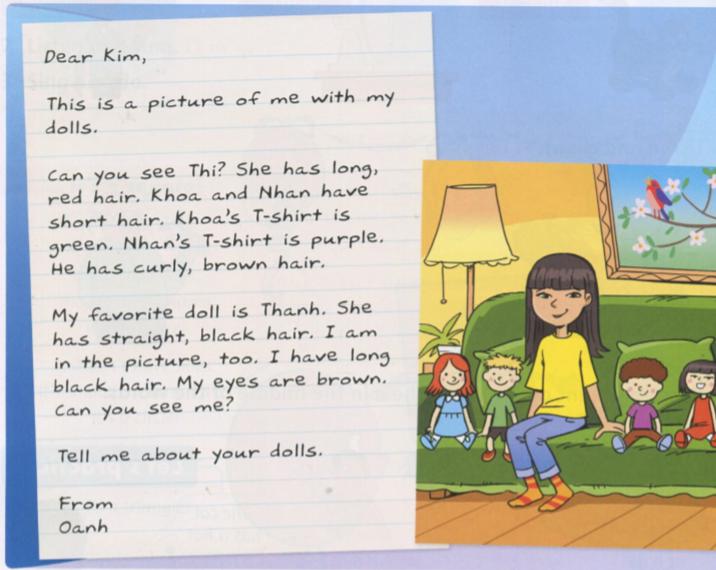 Dear Kim,
This is a picture of me with my
dolls.
Can you see Thi? She has long,
red hair. Khoa and Nhan have
short hair. Khoa's T-shirt is
green. Nhan's T-shirt is purple.
He has curly, brown hair.
My favorite doll is Thanh. She
has straight, black hair. I am
in the picture, too. I have long
black hair. My eyes are brown.
Can you see me?
Tell me about your dolls.
From
Oanh